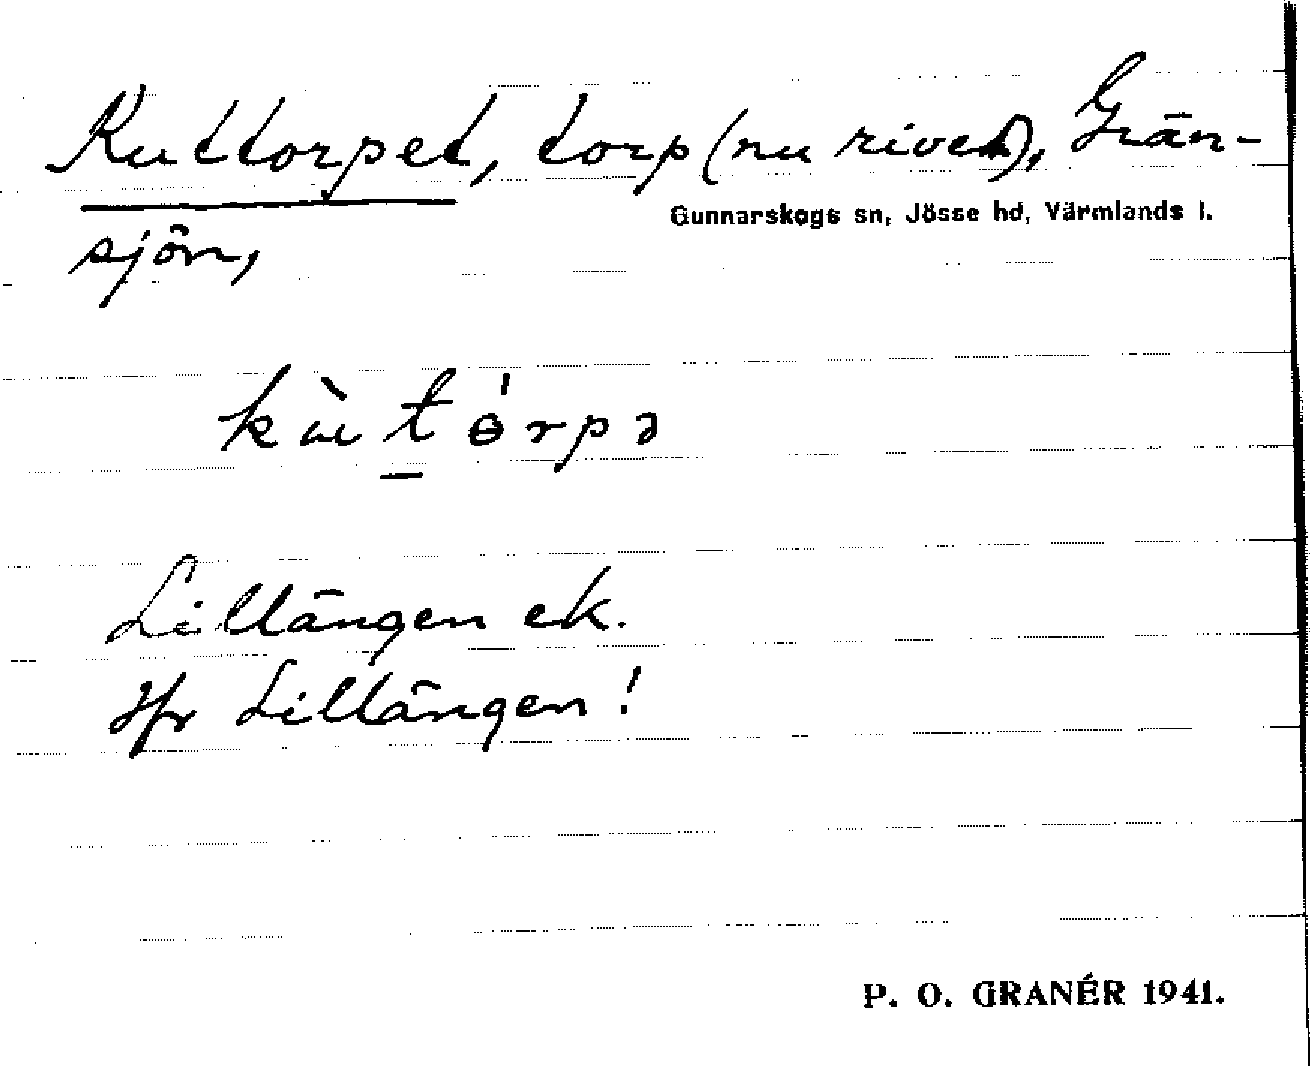 Kuttorpet, torp (nu rivet), Grän-
Gunnarskogs sn, Jösse hd, Värmlands l.
sjön,
kùt ɵ́rpə
Lillängen ek.
Jfr Lillängen!
P. O. GRANÉR 1941.